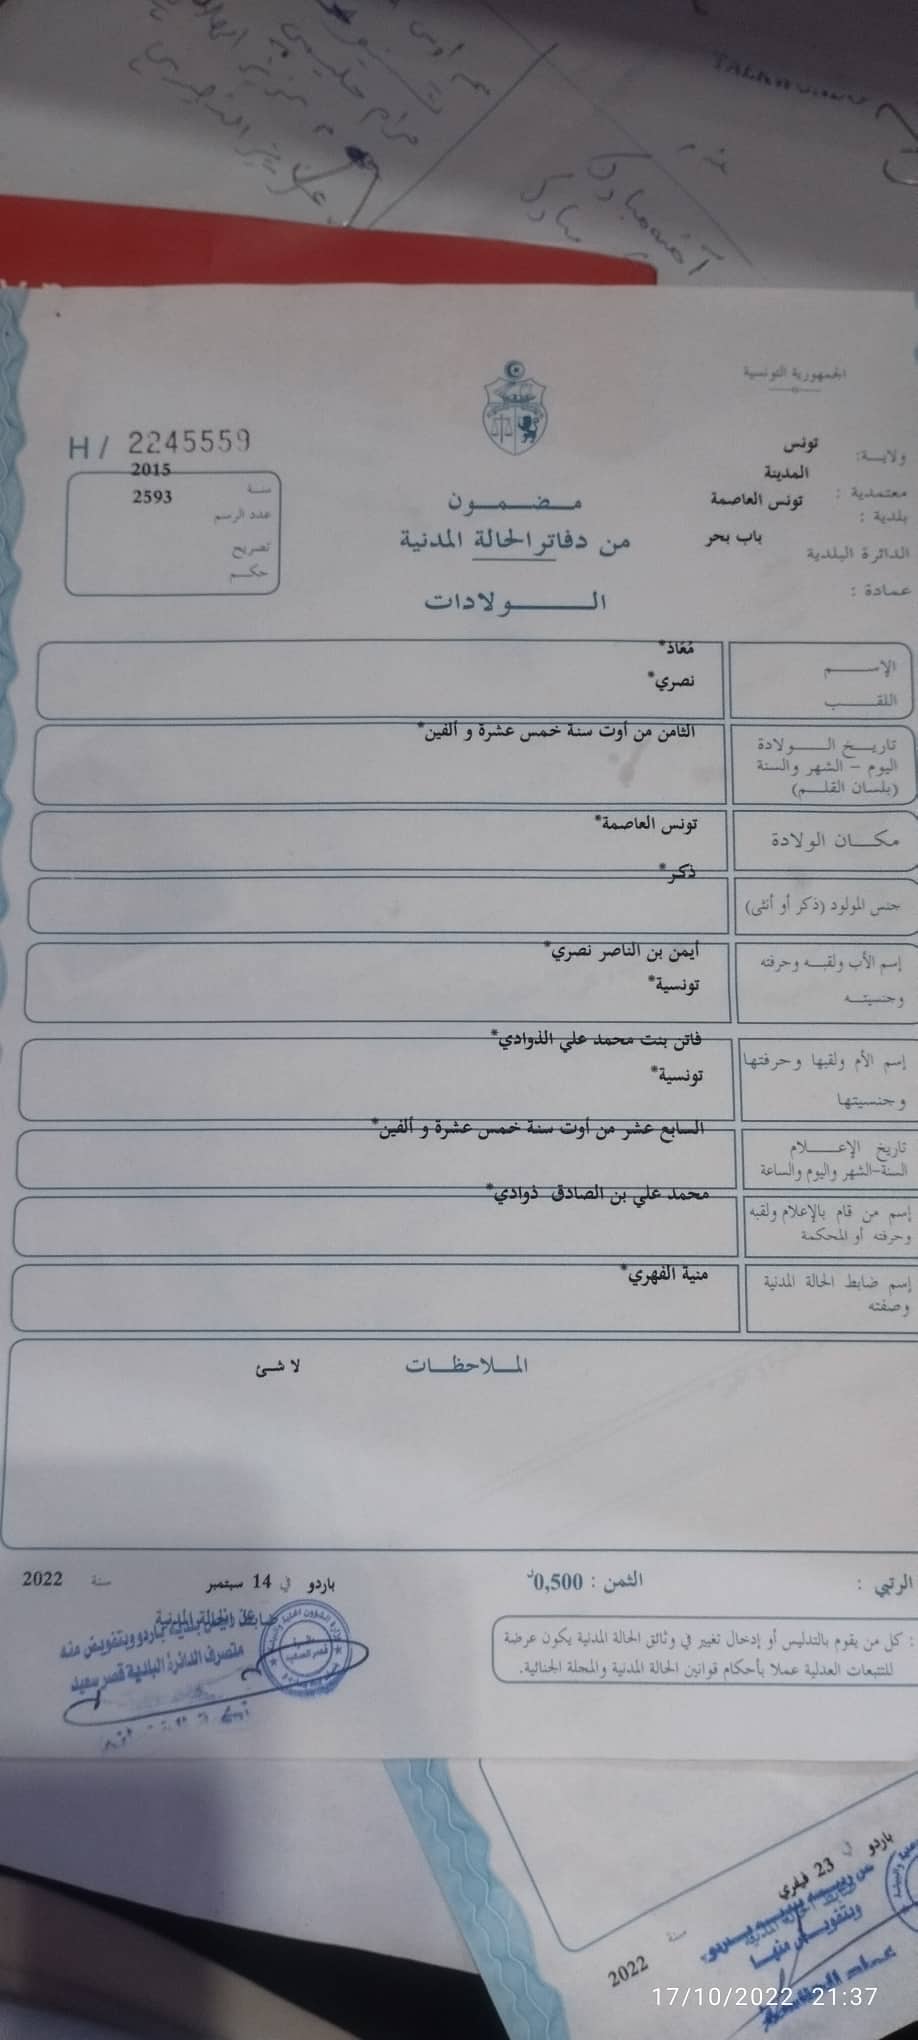 الجمهورية التونسية
ولاية: تونس
معتمدية : المدينة
بلدية : تونس العاصمة
الدائرة البلدية باب بحر
عمادة :
H/ 2245559
سنة 2015
عدد الرسم 2593
تصريح
حكم
مضمون
من دفاتر الحالة المدنية
الولادات
الإسم مُعَاذ*
اللقب نصري*
تاريخ الولادة الثامن من أوت سنة خمس عشرة و ألفين*
اليوم – الشهر والسنة
(بلسان القلم)
مكان الولادة تونس العاصمة*
جنس المولود (ذكر أو أنثى) ذكر*
إسم الأب ولقبه وحرفته أيمن بن الناصر نصري*
وجنسيته تونسية*
إسم الأم ولقبها وحرفتها فاتن بنت محمد علي الذوادي*
وجنسيتها تونسية*
تاريخ الإعلام السابع عشر من أوت سنة خمس عشرة و ألفين*
السنة-الشهر واليوم والساعة
إسم من قام بالإعلام ولقبه محمد علي بن الصادق ذوادي*
وحرفته أو المحكمة
إسم ضابط الحالة المدنية منية الفهري*
وصفته
الملاحظات لا شئ
الرتبي :
الثمن : 0,500د
باردو في 14 سبتمبر سنة 2022
: كل من يقوم بالتدليس أو إدخال تغيير في وثائق الحالة المدنية يكون عرضة
للتتبعات العدلية عملا بأحكام قوانين الحالة المدنية والمجلة الجنائية.
عن رئيس بلدية باردو وبتفويض منه
ضابط الحالة المدنية
متصرف الدائرة البلدية قصر سعيد
باردو في 23 فيفري سنة 2022
وبتفويض منها
17/10/2022 21:37